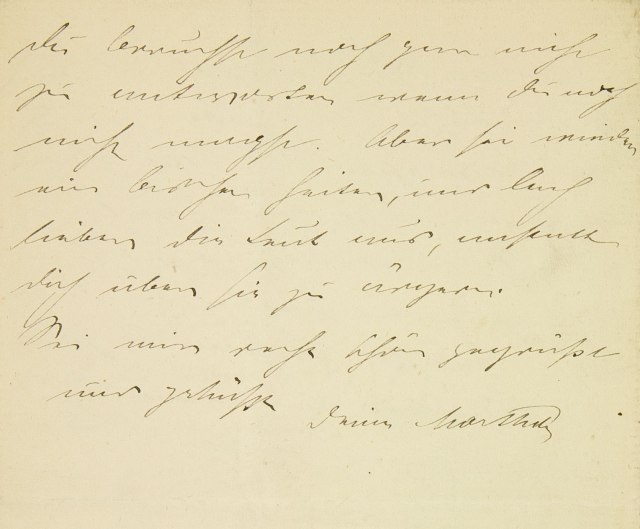 Du brauchst noch gar nicht
zu antworten wenn Du noch
nicht magst. Aber sei wieder
ein bischen heiter, und lach
lieber die Leut aus, anstatt
dich über sie zu ärgern.
Sei mir recht schön gegrüßt
und geküßt Deine Martha